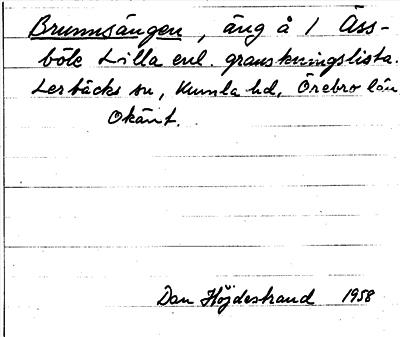 Brunnsängen, äng å 1 Äss-
böle Lilla enl. granskningslista.
Lerbäcks sn, Kumla hd, Örebro län
Okänt.
Dan Höjdestrand 1958